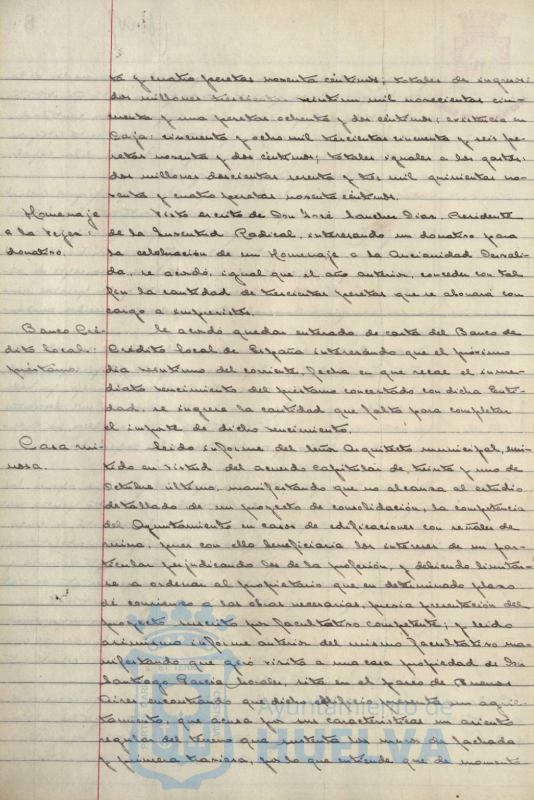 ta y cuatro pesetas noventa céntimos; totales de ingresos:
dos millones trescientas veintiun mil novecientas cin-
cuenta y una pesetas ochenta y dos céntimos; existencia en
Caja: cincuenta y ocho mil trescientas cincuenta y seis pe-
setas noventa y dos céntimos; totales iguales a los gastos:
dos millones doscientas sesenta y tres mil quinientas no-
venta y cuatro pesetas noventa céntimos.
Homenaje
a la Vejez:
donativo.
Visto escrito de Don José Sánchez Díaz, Presidente
de la Juventud Radical, interesando un donativo para
la celebración de un Homenaje a la Ancianidad Desvali-
da, se acordó, igual que el año anterior, conceder con tal
fin la cantidad de trescientas pesetas que se abonará con
cargo a imprevistos.
Banco Cré-
dito local:
préstamo.
Se acordó quedar enterado de carta del Banco de
Crédito local de España interesando que el próximo
día veintiuno del corriente, fecha en que recae el inme-
diato vencimiento del préstamo concertado con dicha Enti-
dad, se ingrese la cantidad que falta para completar
el importe de dicho vencimiento.
Casa rui-
nosa.
Leido informe del Señor Arquitecto municipal, emi-
tido en virtud del acuerdo capitular de treinta y uno de
Octubre último, manifestando que no alcanza al estudio
detallado de un proyecto de consolidación, la competencia
del Ayuntamiento en casos de edificaciones con señales de
ruina, pues con ello beneficiaria los intereses de un par-
ticular perjudicando los de la profesión, y debiendo limitar-
se a ordenar al propietario que en determinado plazo
dé comienzo a las obras necesarias, previa presentación del
proyecto suscrito por facultativo competente; y leido
asimismo informe anterior del mismo facultativo ma-
nifestando que giró visita a una casa propiedad de Don
Santiago García Morales, sita en el paseo de Buenos
Aires, encontrando que dicho edificio presenta un agrie-
tamiento, que acusa por sus características un asiento
regular del terreno que sustenta los muros de fachada
y primera traviesa, por lo que entiende que de momento
Ayuntamiento de
HUELVA